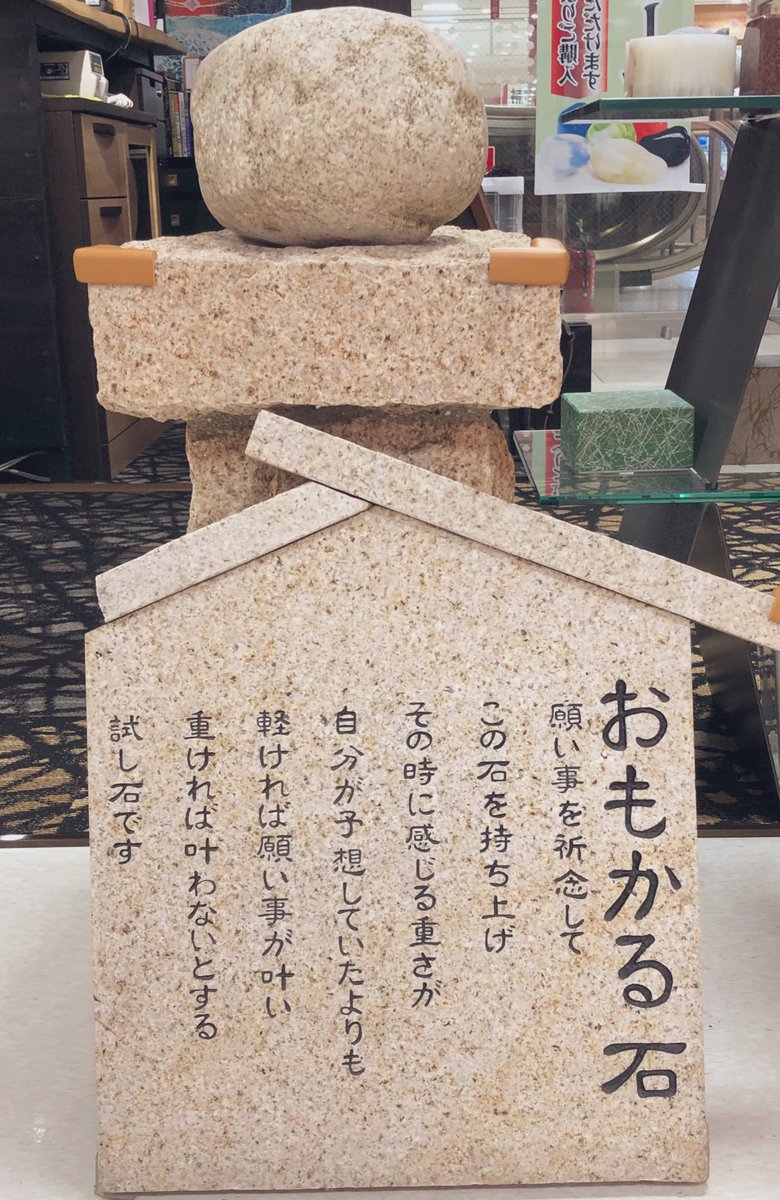 おもかる石
願い事を祈念して
この石を持ち上げ
その時に感じる重さが
自分が予想していたよりも
軽ければ願い事が叶い
重ければ叶わないとする
試し石です
ただけます
よりご購入